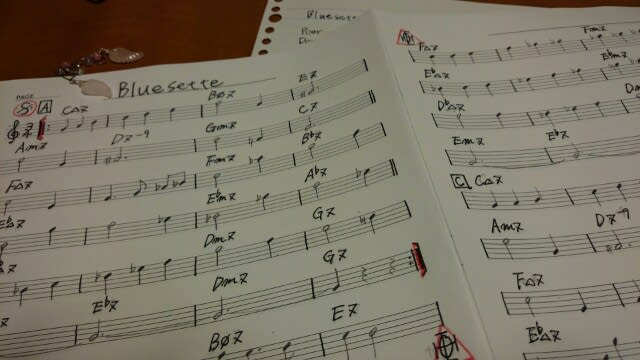 Bluesette
Pour
PAGE
Bluesette
A
C△7 Bø7 E7
3
4
Am7 D7-9 Gm7 C7
F△7 Fm7 B♭7
E♭△7 E♭m7 A♭7
Dm7 G7
E♭7 Dm7 G7
Bø7 E7
F△7 Fm7
E♭△7 E♭m7
D♭△7
Em7 E♭7
C C△7
Am7 D7-9
F△7
E♭△7